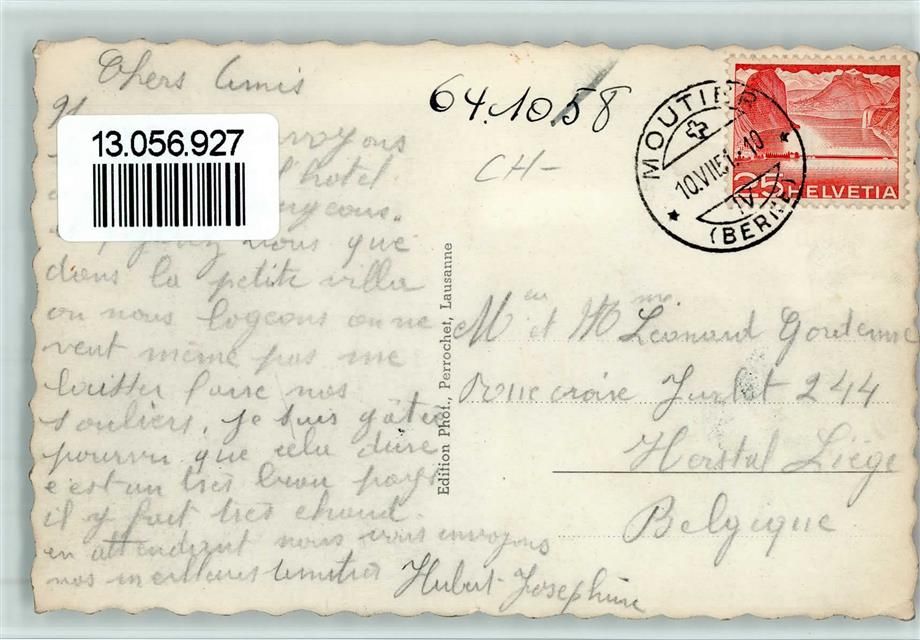 Chers Amis
13.056.927
voyons
l'hotel
geons.
vous que
dans la petite villa
ou nous logeons on ne
veut même pas me
laisser faire nos
souliers, je suis gâté
pourvu que cela dure
c'est un très beau pays
il y fait très chaud.
en attendant nous vous envoyons
nos meilleures amitiés Hubert Josephine
Edition Phot., Perrochet, Lausanne
64.10/58
CH-
MOUTIER
10.VII.51-10
(BERNE)
25 HELVETIA
Mr et Mme Leonard Gordenne
Rue croix Jurlet 244
Herstal Liége
Belgique